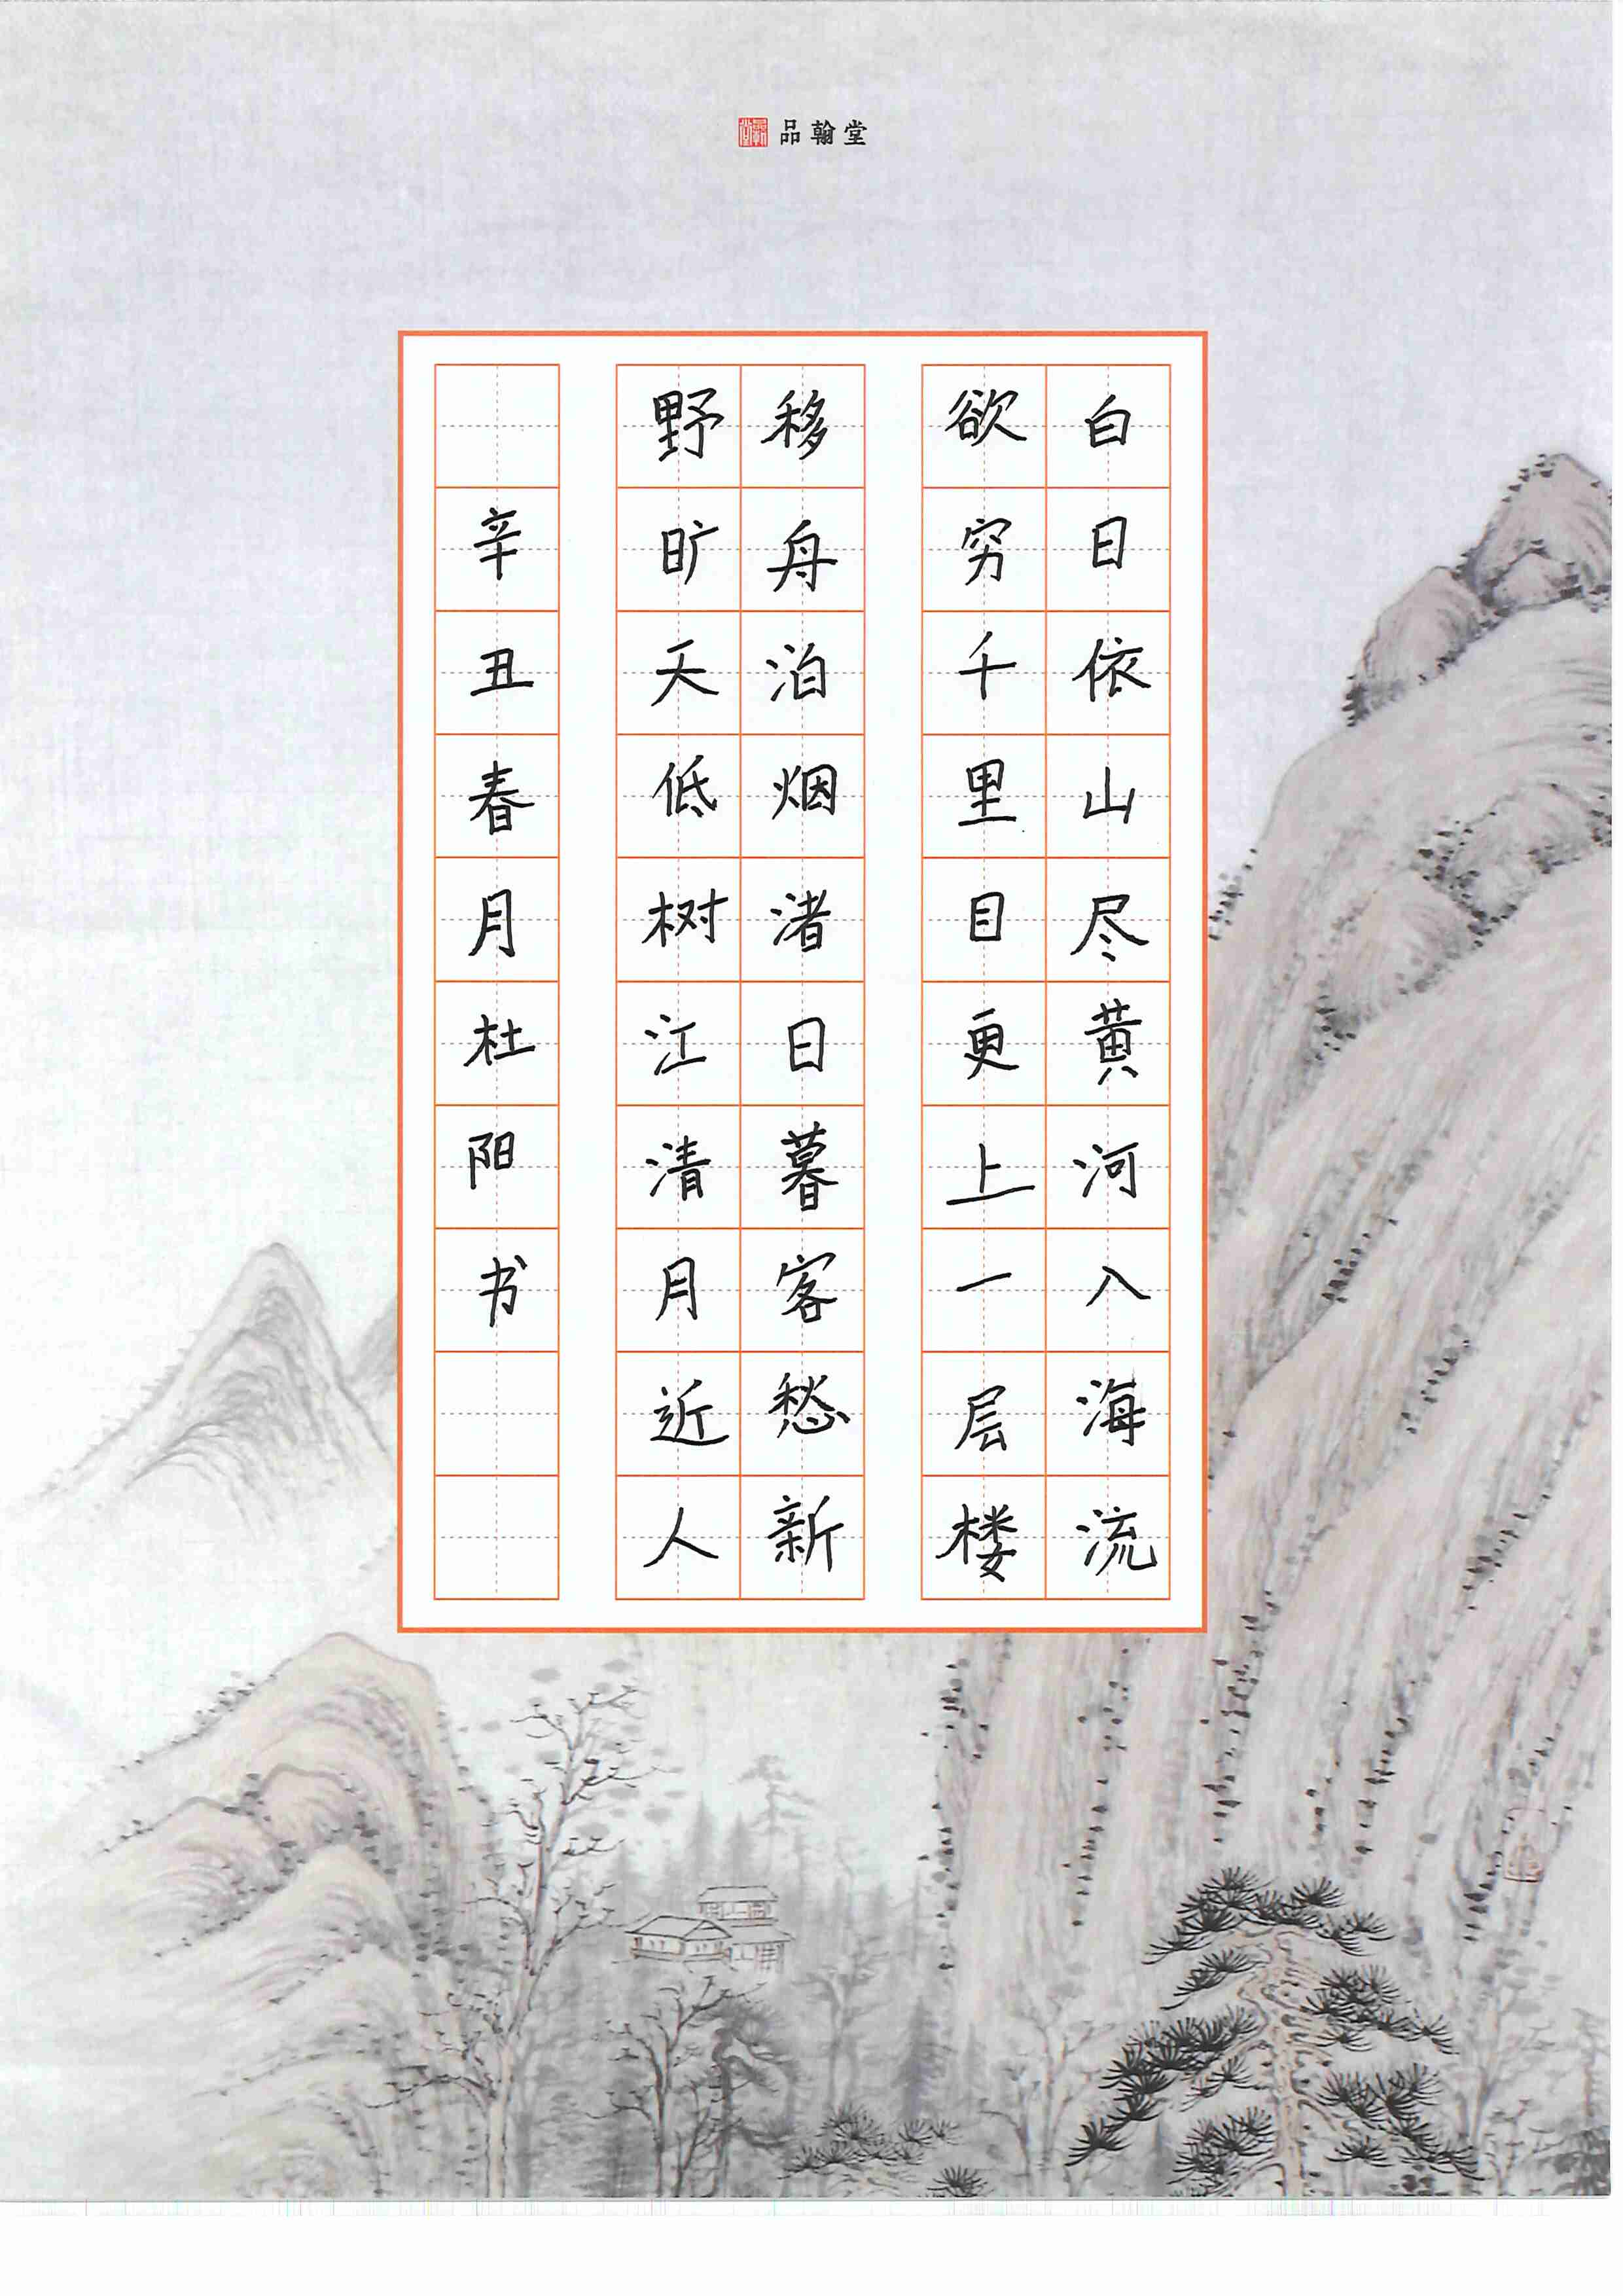 品翰堂
白日依山尽黄河入海流
欲穷千里目更上一层楼
移舟泊烟渚日暮客愁新
野旷天低树江清月近人
辛丑春月杜阳书